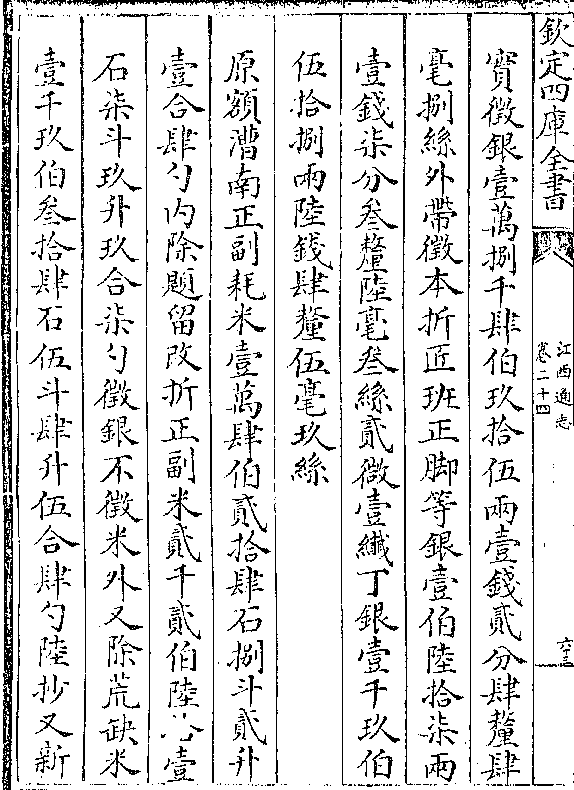 欽定四庫全書
江西通志
卷二十四
六十三
實徵銀壹萬捌千肆伯玖拾伍兩壹錢貳分肆釐肆
毫捌絲外帶徵本折匠班正脚等銀壹伯陸拾柒兩
壹錢柒分叁釐陸毫叁絲貳微壹纖丁銀壹千玖伯
伍拾捌兩陸錢肆釐伍毫玖絲
原額漕南正副耗米壹萬肆伯貳拾肆石捌斗貳升
壹合肆勺内除題留改折正副米貳千貳伯陸拾壹
石柒斗玖升玖合柒勺徵銀不徵米外又除荒缺米
壹千玖伯叁拾肆石伍斗肆升伍合肆勺陸抄又新